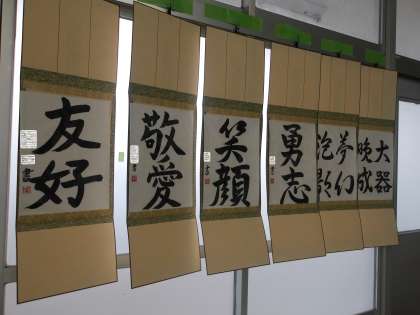 友好
敬愛
笑顔
勇志
夢幻
泡影
大器
晩成